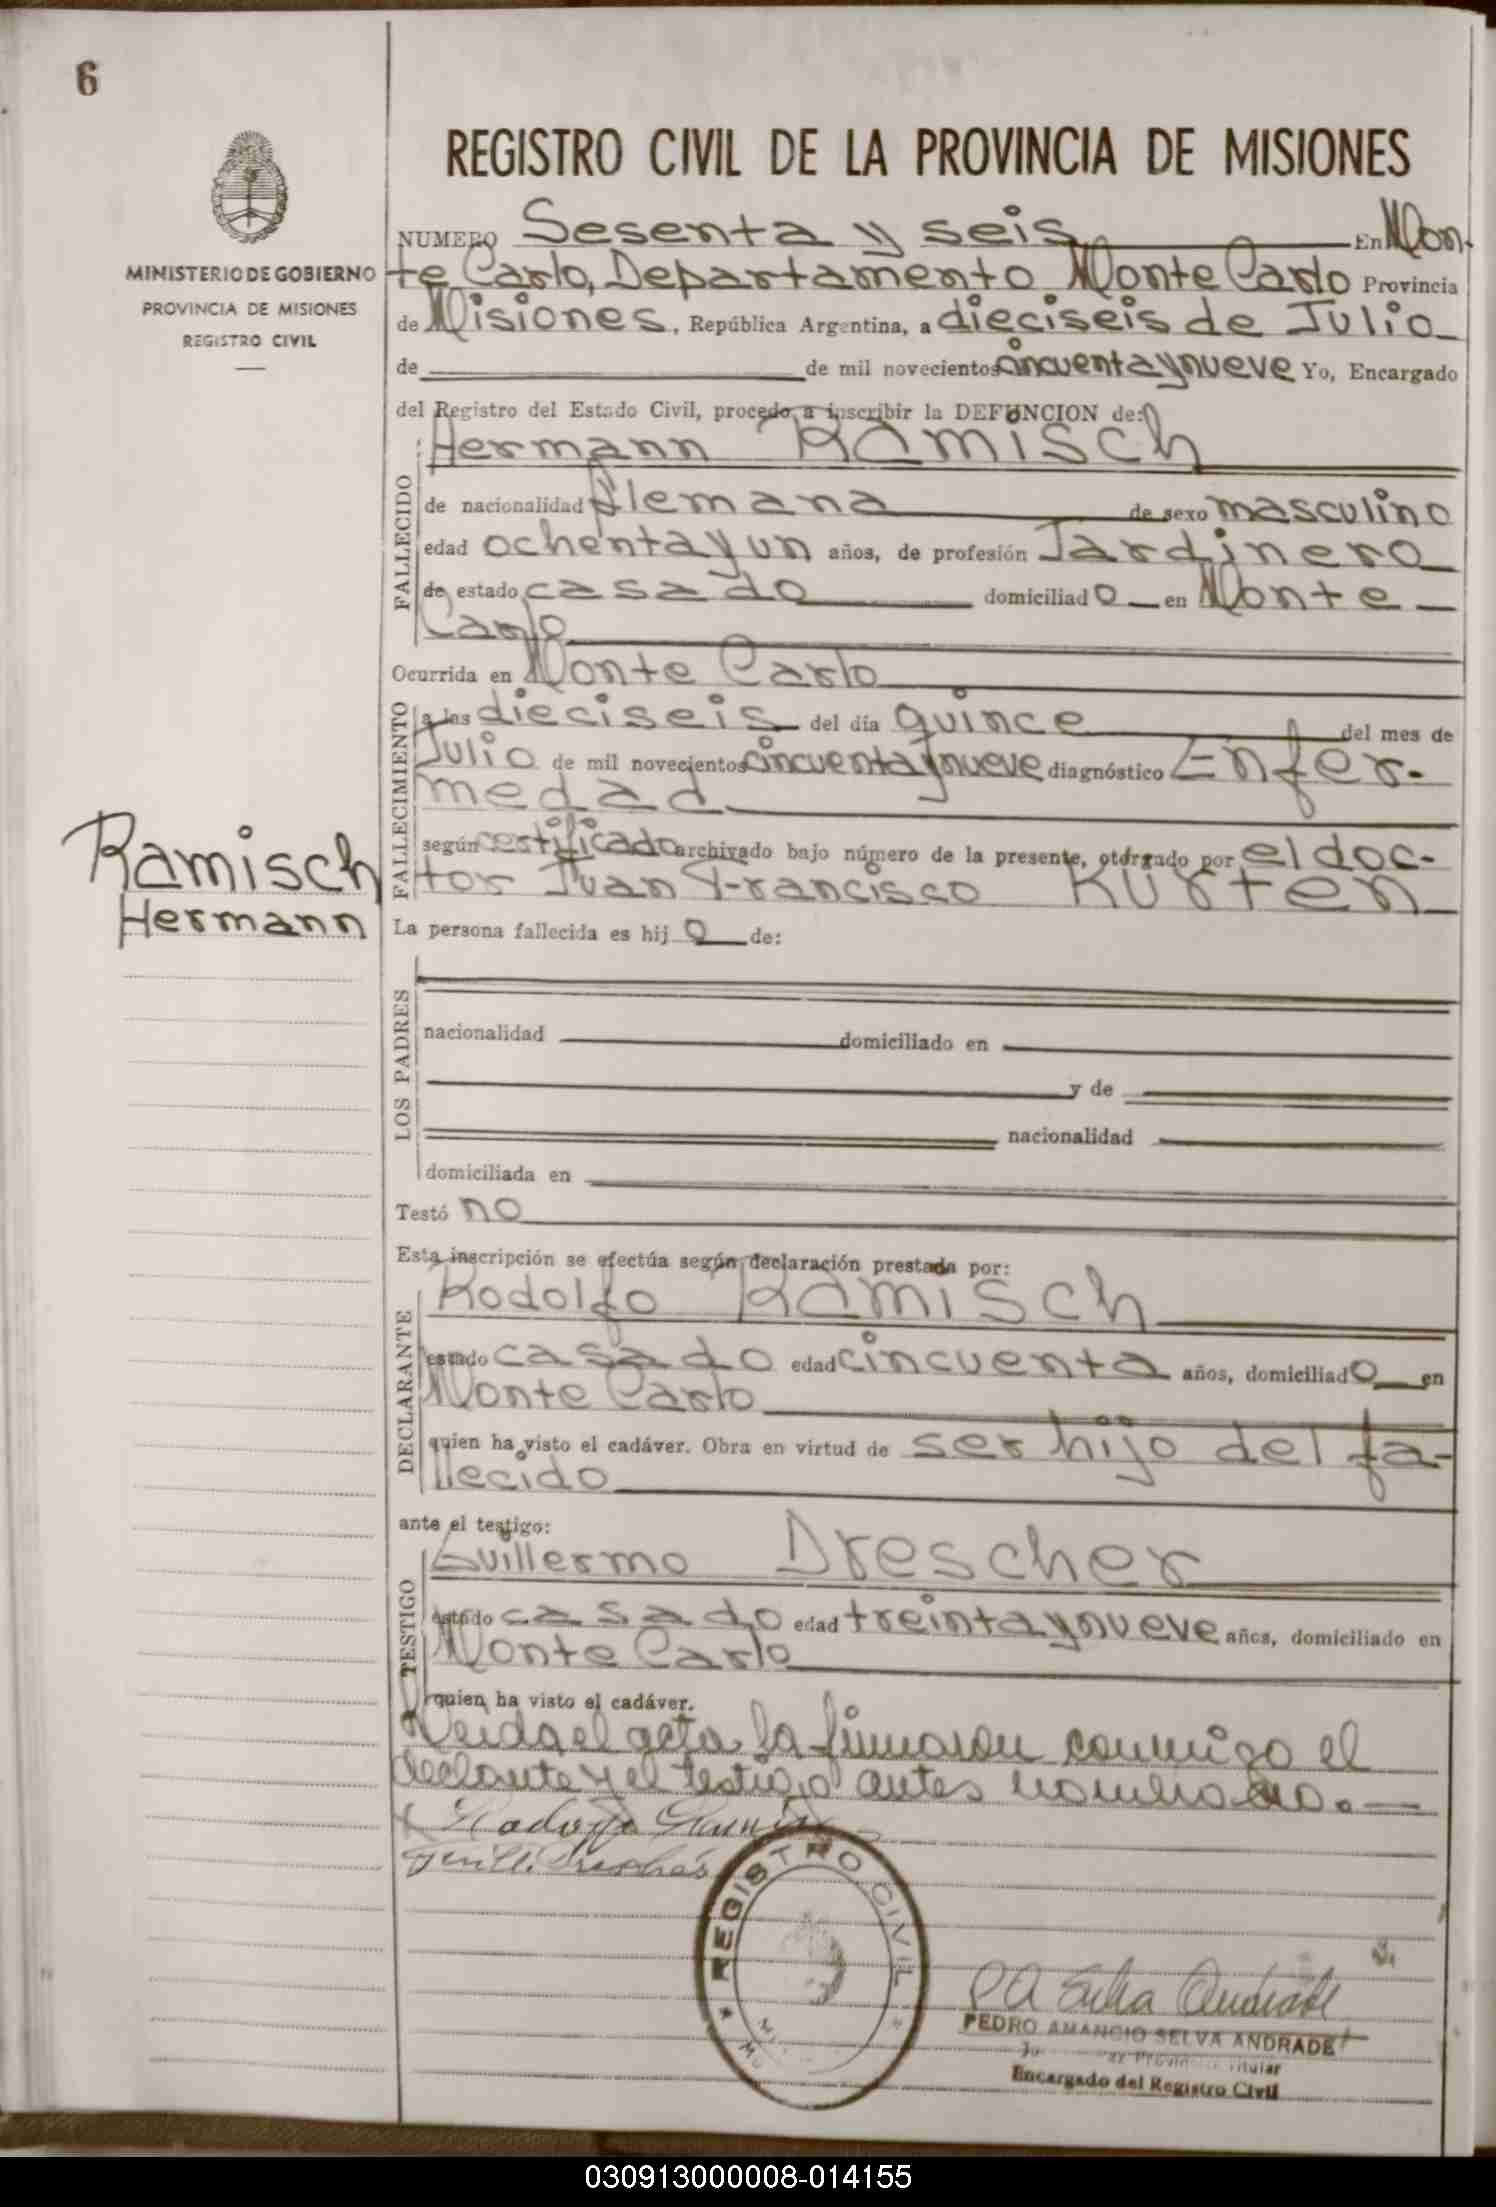 6
REGISTRO CIVIL DE LA PROVINCIA DE MISIONES
MINISTERIO DE GOBIERNO
PROVINCIA DE MISIONES
REGISTRO CIVIL
NUMERO Sesenta y seis En Mon-
te Carlo, Departamento Monte Carlo Provincia
de Misiones, República Argentina, a dieciseis de Julio
de de mil novecientos cincuenta y nueve Yo, Encargado
del Registro del Estado Civil, procedo a inscribir la DEFUNCION de:
Hermann Ramisch
FALLECIDO
de nacionalidad Alemana de sexo masculino
edad ochenta y un años, de profesión Jardinero
de estado casado domiciliado en Monte
Carlo
Ocurrida en Monte Carlo
FALLECIMIENTO
a las dieciseis del día quince del mes de
Julio de mil novecientos cincuenta y nueve diagnóstico Enfer-
medad
según certificado archivado bajo número de la presente, otorgado por el doc-
tor Juan Francisco Kurten
Ramisch
Hermann
La persona fallecida es hijo de:
LOS PADRES
nacionalidad domiciliado en
y de
nacionalidad
domiciliada en
Testó no
Esta inscripción se efectúa según declaración prestada por:
Rodolfo Ramisch
DECLARANTE
estado casado edad cincuenta años, domiciliado en
Monte Carlo
quien ha visto el cadáver. Obra en virtud de ser hijo del fa-
llecido
ante el testigo:
Guillermo Drescher
TESTIGO
estado casado edad treinta y nueve años, domiciliado en
Monte Carlo
quien ha visto el cadáver.
Leida el acta la firmaron conmigo el
declante y el testigo antes nombrado.
Rodolfo Ramisch
REGISTRO CIVIL
PA Selva Andrade
PEDRO AMANCIO SELVA ANDRADE
Titular
Encargado del Registro Civil
030913000008-014155